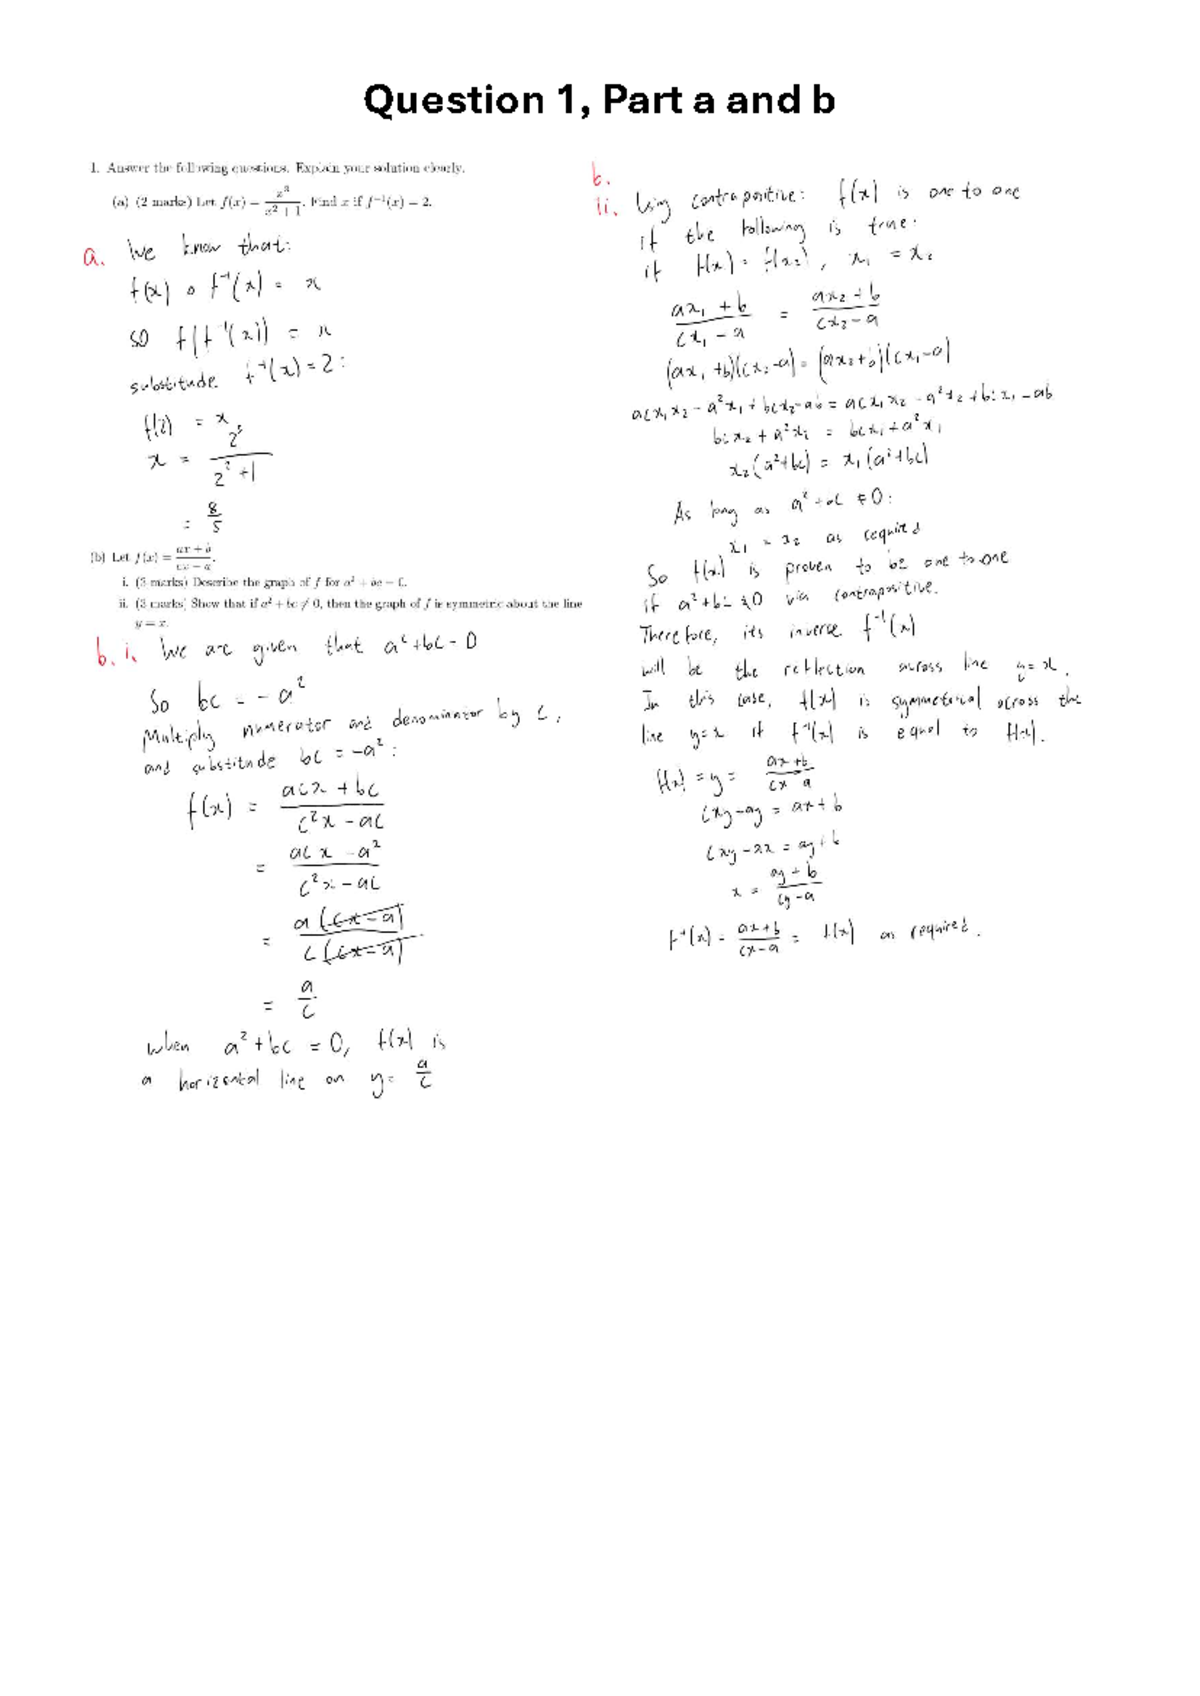 Question 1, Part a and b
1. Answer the following questions. Explain your solution clearly.
(a) (2 marks) Let f(x) = x³/(x² + 1). Find x if f⁻¹(x) = 2.
a. We know that:
f(x) ∘ f⁻¹(x) = x
so f(f⁻¹(x)) = x
substitude f⁻¹(x) = 2:
f(2) = x
x = 2³/(2² + 1)
= 8/5
(b) Let f(x) = (ax + b)/(cx − a).
i. (3 marks) Describe the graph of f for a² + bc = 0.
ii. (3 marks) Show that if a² + bc ≠ 0, then the graph of f is symmetric about the line
y = x.
b. i. We are given that a² + bc = 0
So bc = −a²
Multiply numerator and denominator by c,
and substitude bc = −a²:
f(x) = (acx + bc)/(c²x − ac)
= (acx − a²)/(c²x − ac)
= a(cx − a)/c(cx − a)
= a/c
when a² + bc = 0, f(x) is
a horizontal line on y = a/c
b.
ii. Using contrapositive: f(x) is one to one
if the following is true:
if f(x₁) = f(x₂), x₁ = x₂
(ax₁ + b)/(cx₁ − a) = (ax₂ + b)/(cx₂ − a)
(ax₁ + b)(cx₂ − a) = (ax₂ + b)(cx₁ − a)
acx₁x₂ − a²x₁ + bcx₂ − ab = acx₁x₂ − a²x₂ + bcx₁ − ab
bcx₂ + a²x₂ = bcx₁ + a²x₁
x₂(a² + bc) = x₁(a² + bc)
As long as a² + bc ≠ 0:
x₁ = x₂ as required
So f(x) is proven to be one to one
if a² + bc ≠ 0 via contrapositive.
Therefore, its inverse f⁻¹(x)
will be the reflection across line y = x.
In this case, f(x) is symmetrical across the
line y = x if f⁻¹(x) is equal to f(x).
f(x) = y = (ax + b)/(cx − a)
cxy − ay = ax + b
cxy − ax = ay + b
x = (ay + b)/(cy − a)
f⁻¹(x) = (ax + b)/(cx − a) = f(x) as required.